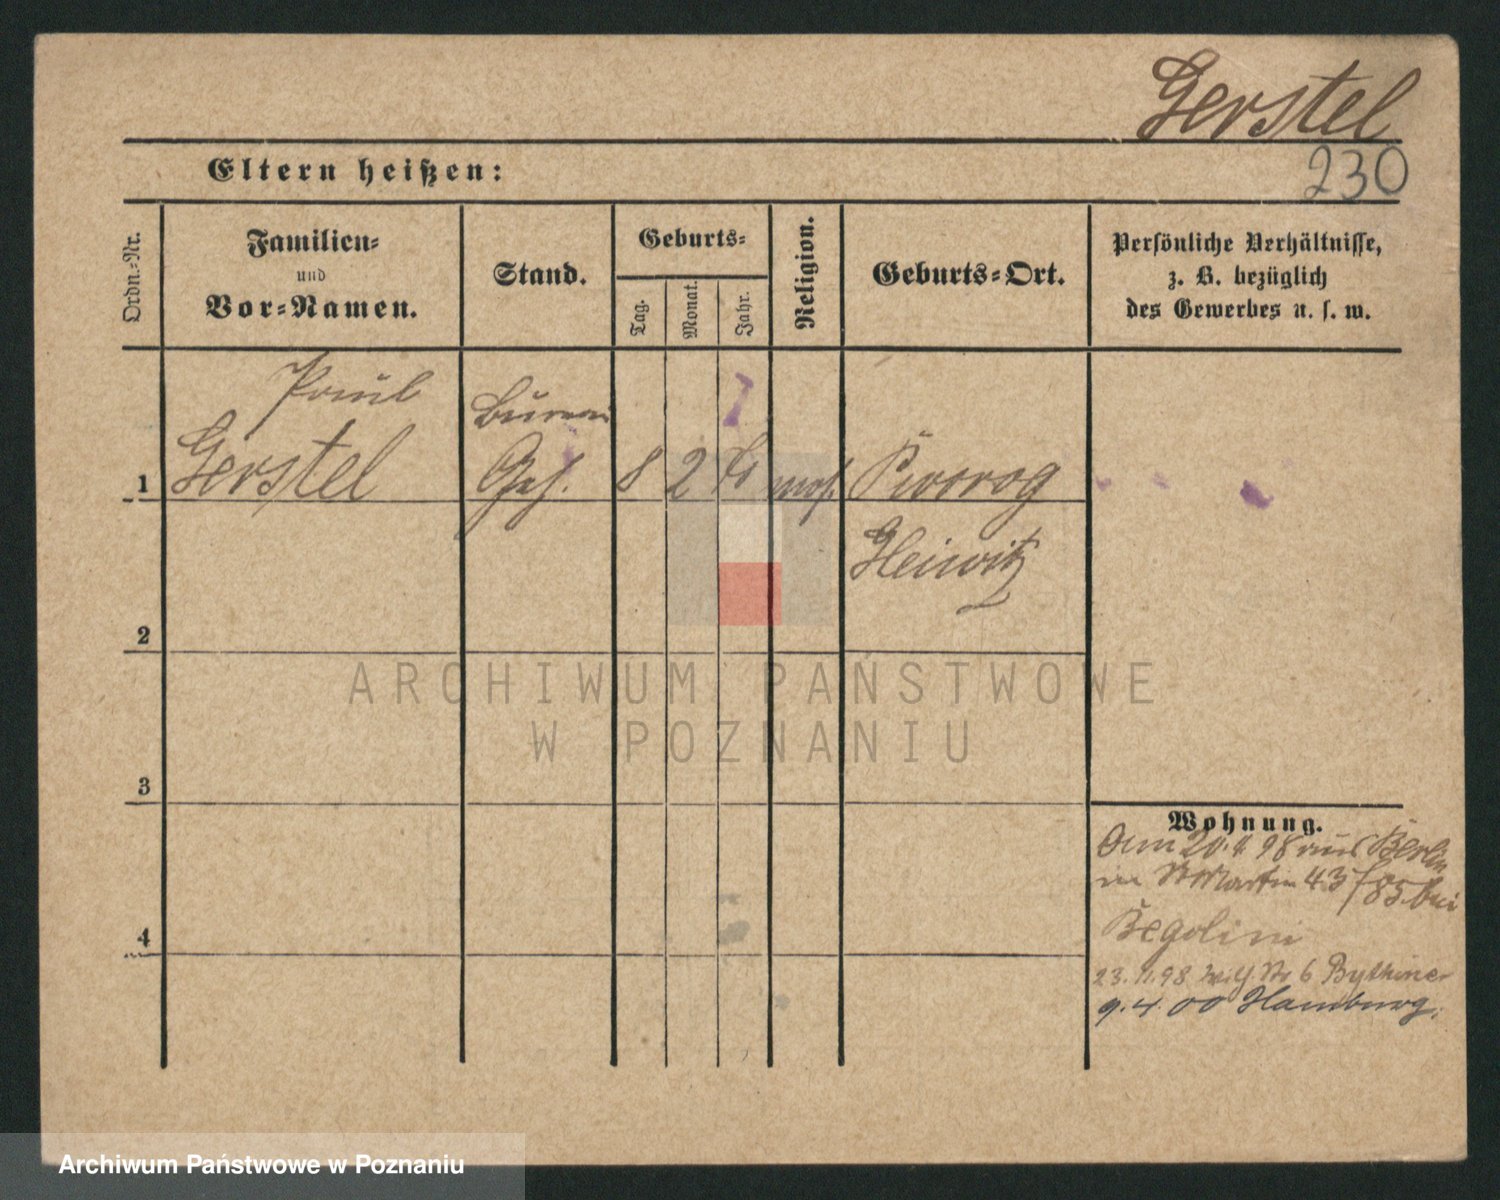 Gerstel
230
Eltern heißen:
Ordn.-Nr.
Familien-
und
Vor-Namen.
Stand.
Geburts-
Tag.
Monat.
Jahr.
Religion.
Geburts-Ort.
Persönliche Verhältnisse,
z. B. bezüglich
des Gewerbes u. s. w.
Paul
Gerstel
Bureau
Geh.
1
8
2
mos.
2
3
4
Wohnung.
Am 20. 98 aus Berlin
in St Martin 43/85 bei
Begolini
23. 98 St 6 Bythiner
9.4.00 Hamburg.
ARCHIWUM PAŃSTWOWE
W POZNANIU
Archiwum Państwowe w Poznaniu